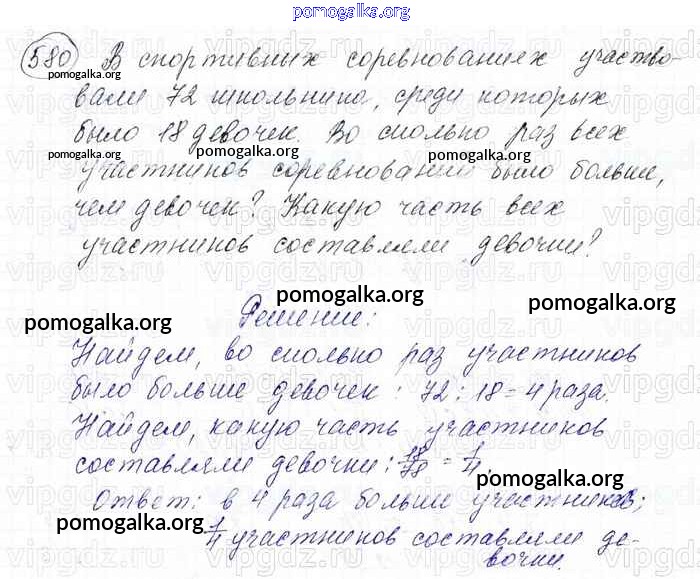 pomogalka.org
580 В спортивных соревнованиях участво-
pomogalka.org
вали 72 школьника, среди которых
pomogalka.org
было 18 девочек. Во сколько раз всех
pomogalka.org pomogalka.org pomogalka.org
участников соревнований было больше,
pomogalka.org
чем девочек? Какую часть всех
участников составляли девочки?
pomogalka.org
Решение:
pomogalka.org pomogalka.org
Найдем, во сколько раз участников
было больше девочек: 72 : 18 = 4 раза.
Найдем, какую часть участников
составляли девочки: 18/78 = 1/4.
pomogalka.org
Ответ: в 4 раза больше участников;
pomogalka.org pomogalka.org
1/4 участников составляли де-
вочки.